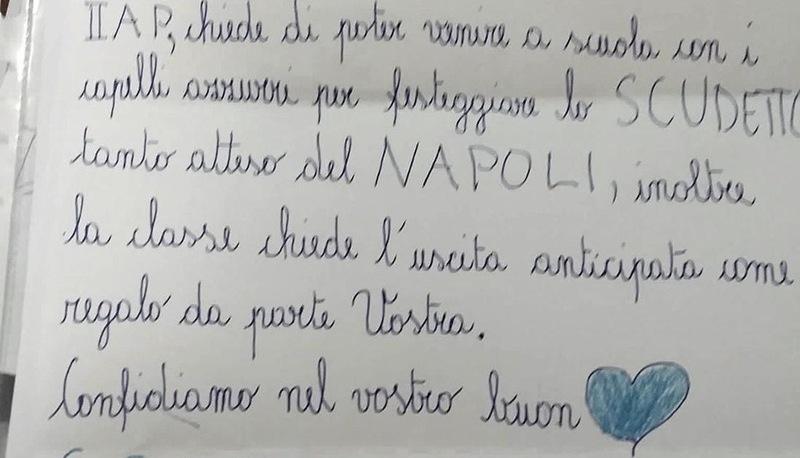 IIAP, chiede di poter venire a scuola con i
capelli azzurri per festeggiare lo SCUDETTO
tanto atteso del NAPOLI, inoltre
la classe chiede l'uscita anticipata come
regalo da parte Vostra.
Confidiamo nel vostro buon